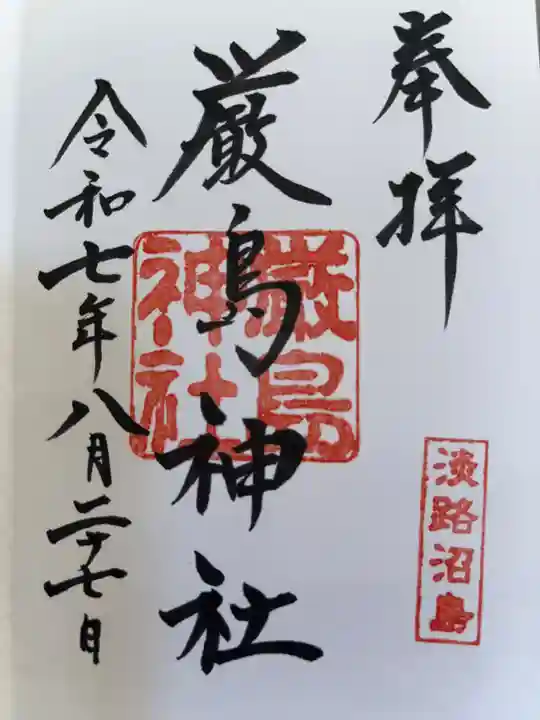 奉拝
淡路沼島
厳島神社
厳島
神社
令和七年八月二十七日